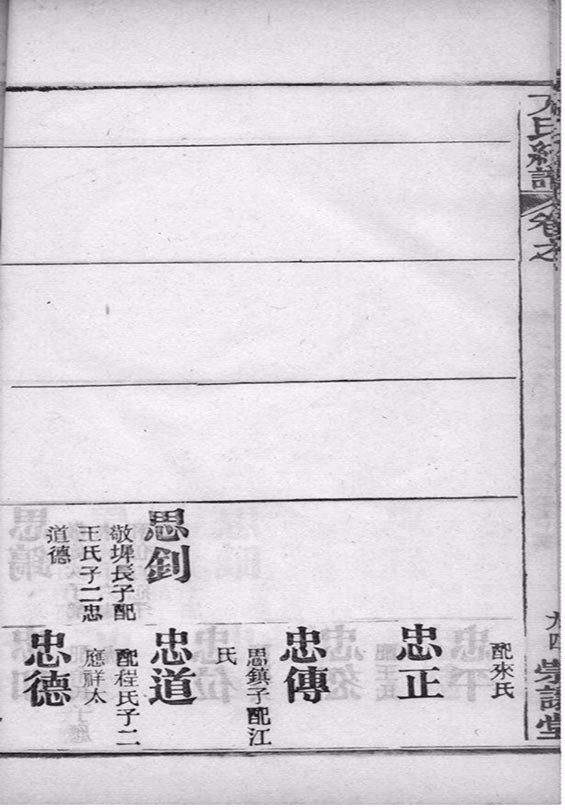 氏統譜
卷之
九四
思釗
敬墀長子配
王氏子二忠
道德
配來氏
忠正
忠傳
思鎮子配江
氏
忠道
配程氏子二
應祥太
忠德